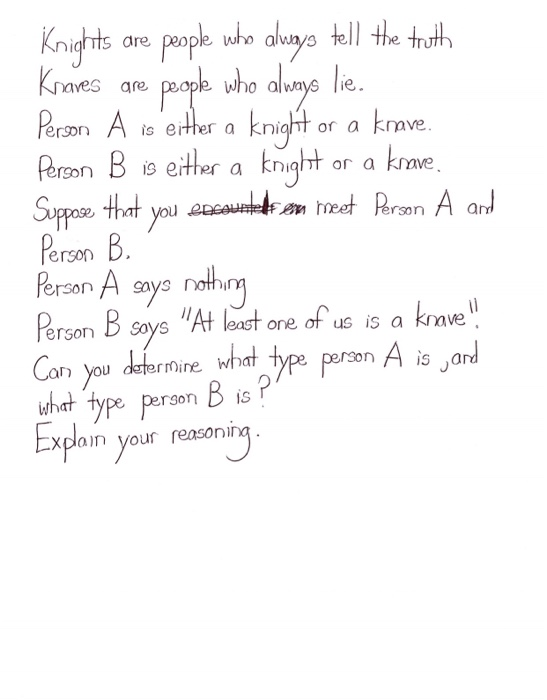 Knights are people who always tell the truth
Knaves are people who always lie.
Person A is either a knight or a knave.
Person B is either a knight or a knave.
Suppose that you meet Person A and
Person B.
Person A says nothing
Person B says "At least one of us is a knave".
Can you determine what type person A is, and
what type person B is?
Explain your reasoning.